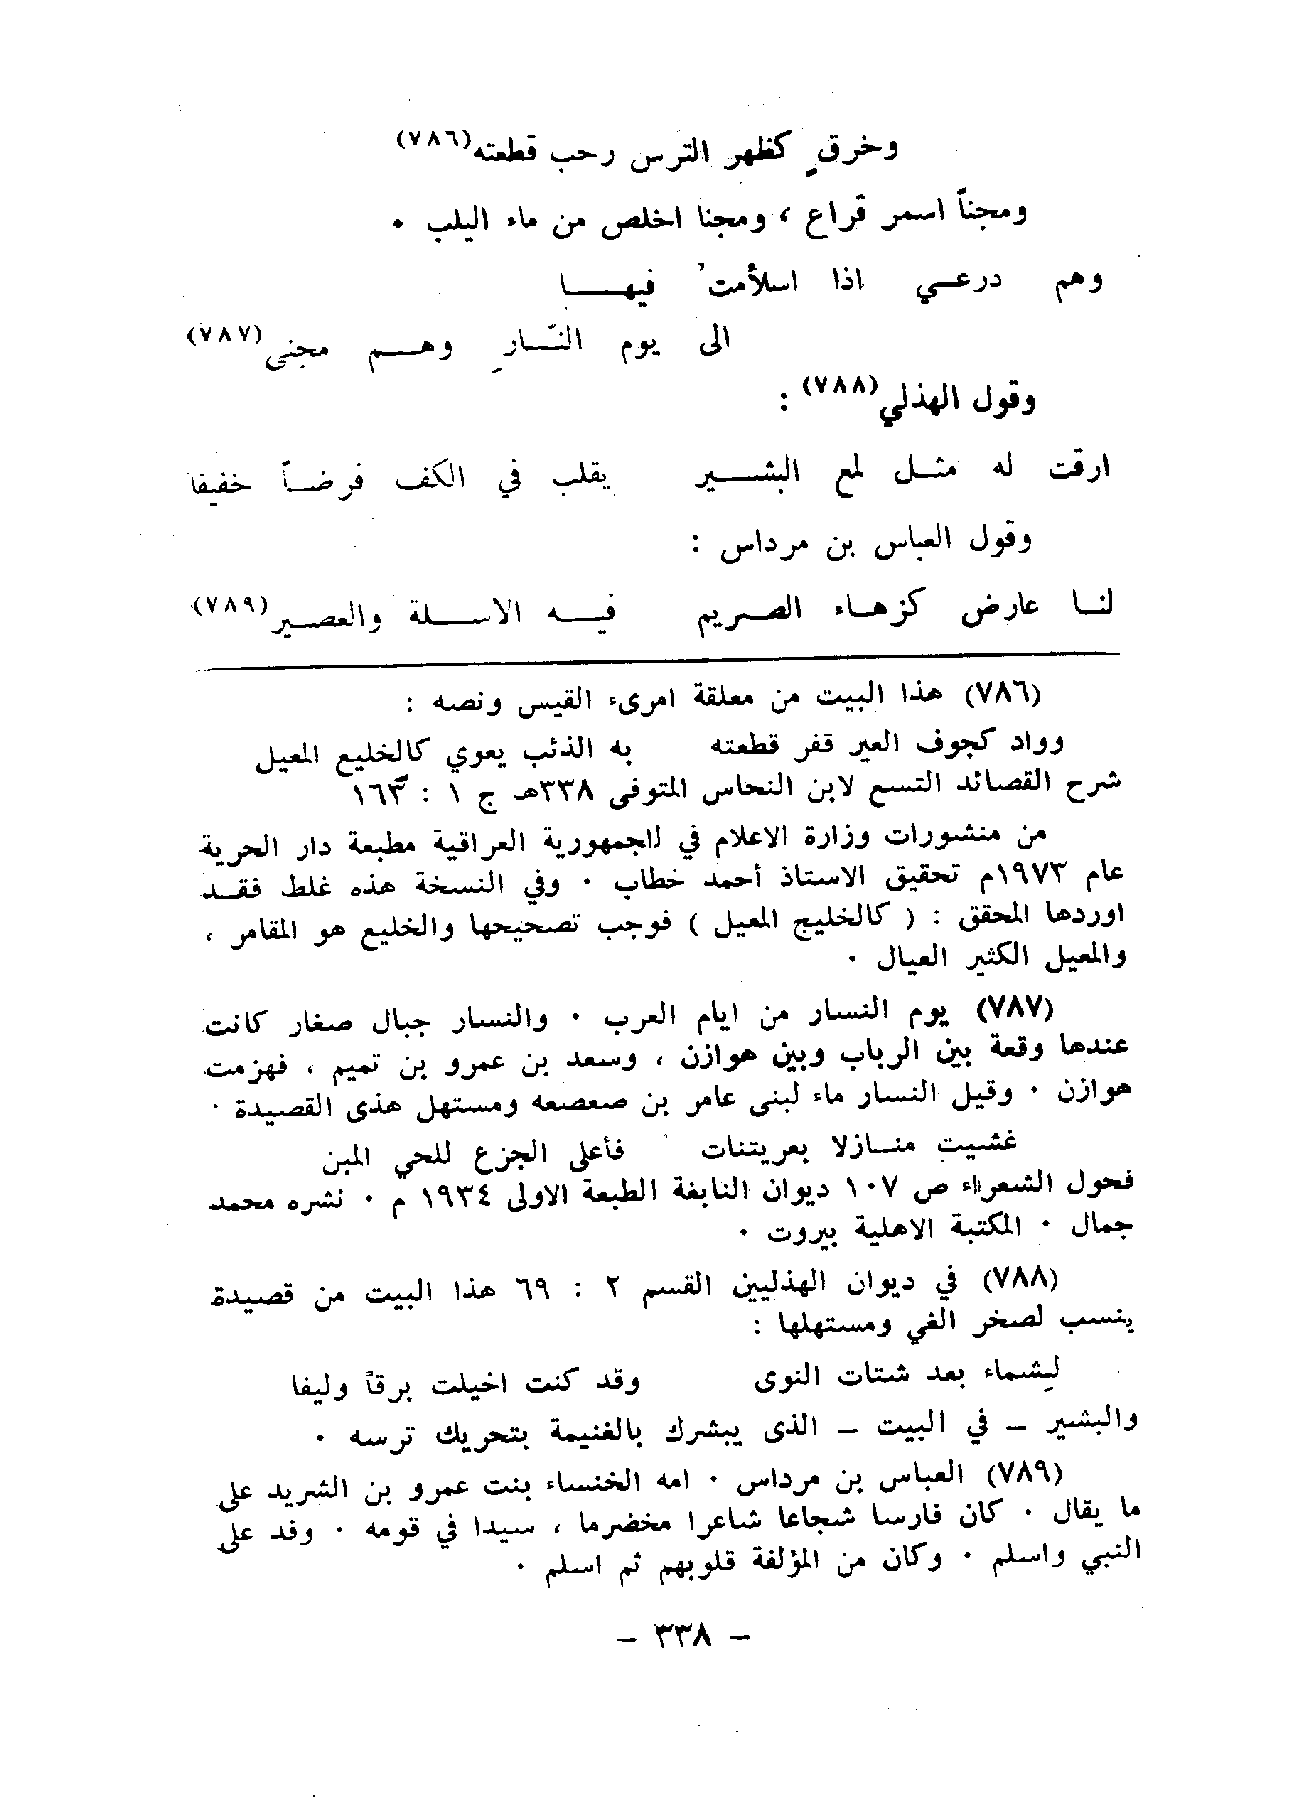 وخرقٍ كظهر الترس رحب قطعته(٧٨٦)
ومجناً اسمر قراع ، ومجنا اخلص من ماء اليلب ٠
وهم درعي اذا اسلأمتُ فيهـــا
الى يوم النّسارِ وهــم مجني(٧٨٧)
وقول الهذلي(٧٨٨) :
ارقت له مثـل لمع البشـــير يقلب في الكف فرضـاً خفيفا
وقول العباس بن مرداس :
لنـا عارض كزهـاء الصـريم فيـــه الاسـلة والعصـير(٧٨٩)
(٧٨٦) هذا البيت من معلقة امرىء القيس ونصه :
وواد كجوف العير قفر قطعته به الذئب يعوي كالخليع المعيل
شرح القصائد التسع لابن النحاس المتوفى ٣٣٨هـ ج ١ : ١٦٣
من منشورات وزارة الاعلام في الجمهورية العراقية مطبعة دار الحرية
عام ١٩٧٣م تحقيق الاستاذ أحمد خطاب ٠ وفي النسخة هذه غلط فقـد
اوردها المحقق : ( كالخليج المعيل ) فوجب تصحيحها والخليع هو المقامر ،
والمعيل الكثير العيال ٠
(٧٨٧) يوم النسار من ايام العرب ٠ والنسار جبال صغار كانت
عندها وقعة بين الرباب وبين هوازن ، وسعد بن عمرو بن تميم ، فهزمت
هوازن ٠ وقيل النسار ماء لبنى عامر بن صعصعه ومستهل هذى القصيدة ٠
غشيت منـازلا بعريتنات فأعلى الجزع للحي المبن
فحول الشعراء ص ١٠٧ ديوان النابغة الطبعة الاولى ١٩٣٤ م ٠ نشره محمد
جمال ٠ المكتبة الاهلية بيروت ٠
(٧٨٨) في ديوان الهذليين القسم ٢ : ٦٩ هذا البيت من قصيدة
ينسب لصخر الغي ومستهلها :
لِشماء بعد شتات النوى وقد كنت اخيلت برقاً وليفا
والبشير – في البيت – الذى يبشرك بالغنيمة بتحريك ترسه ٠
(٧٨٩) العباس بن مرداس ٠ امه الخنساء بنت عمرو بن الشريد على
ما يقال ٠ كان فارسا شجاعا شاعرا مخضرما ، سيدا في قومه ٠ وفد على
النبي واسلم ٠ وكان من المؤلفة قلوبهم ثم اسلم ٠
– ٣٣٨ –